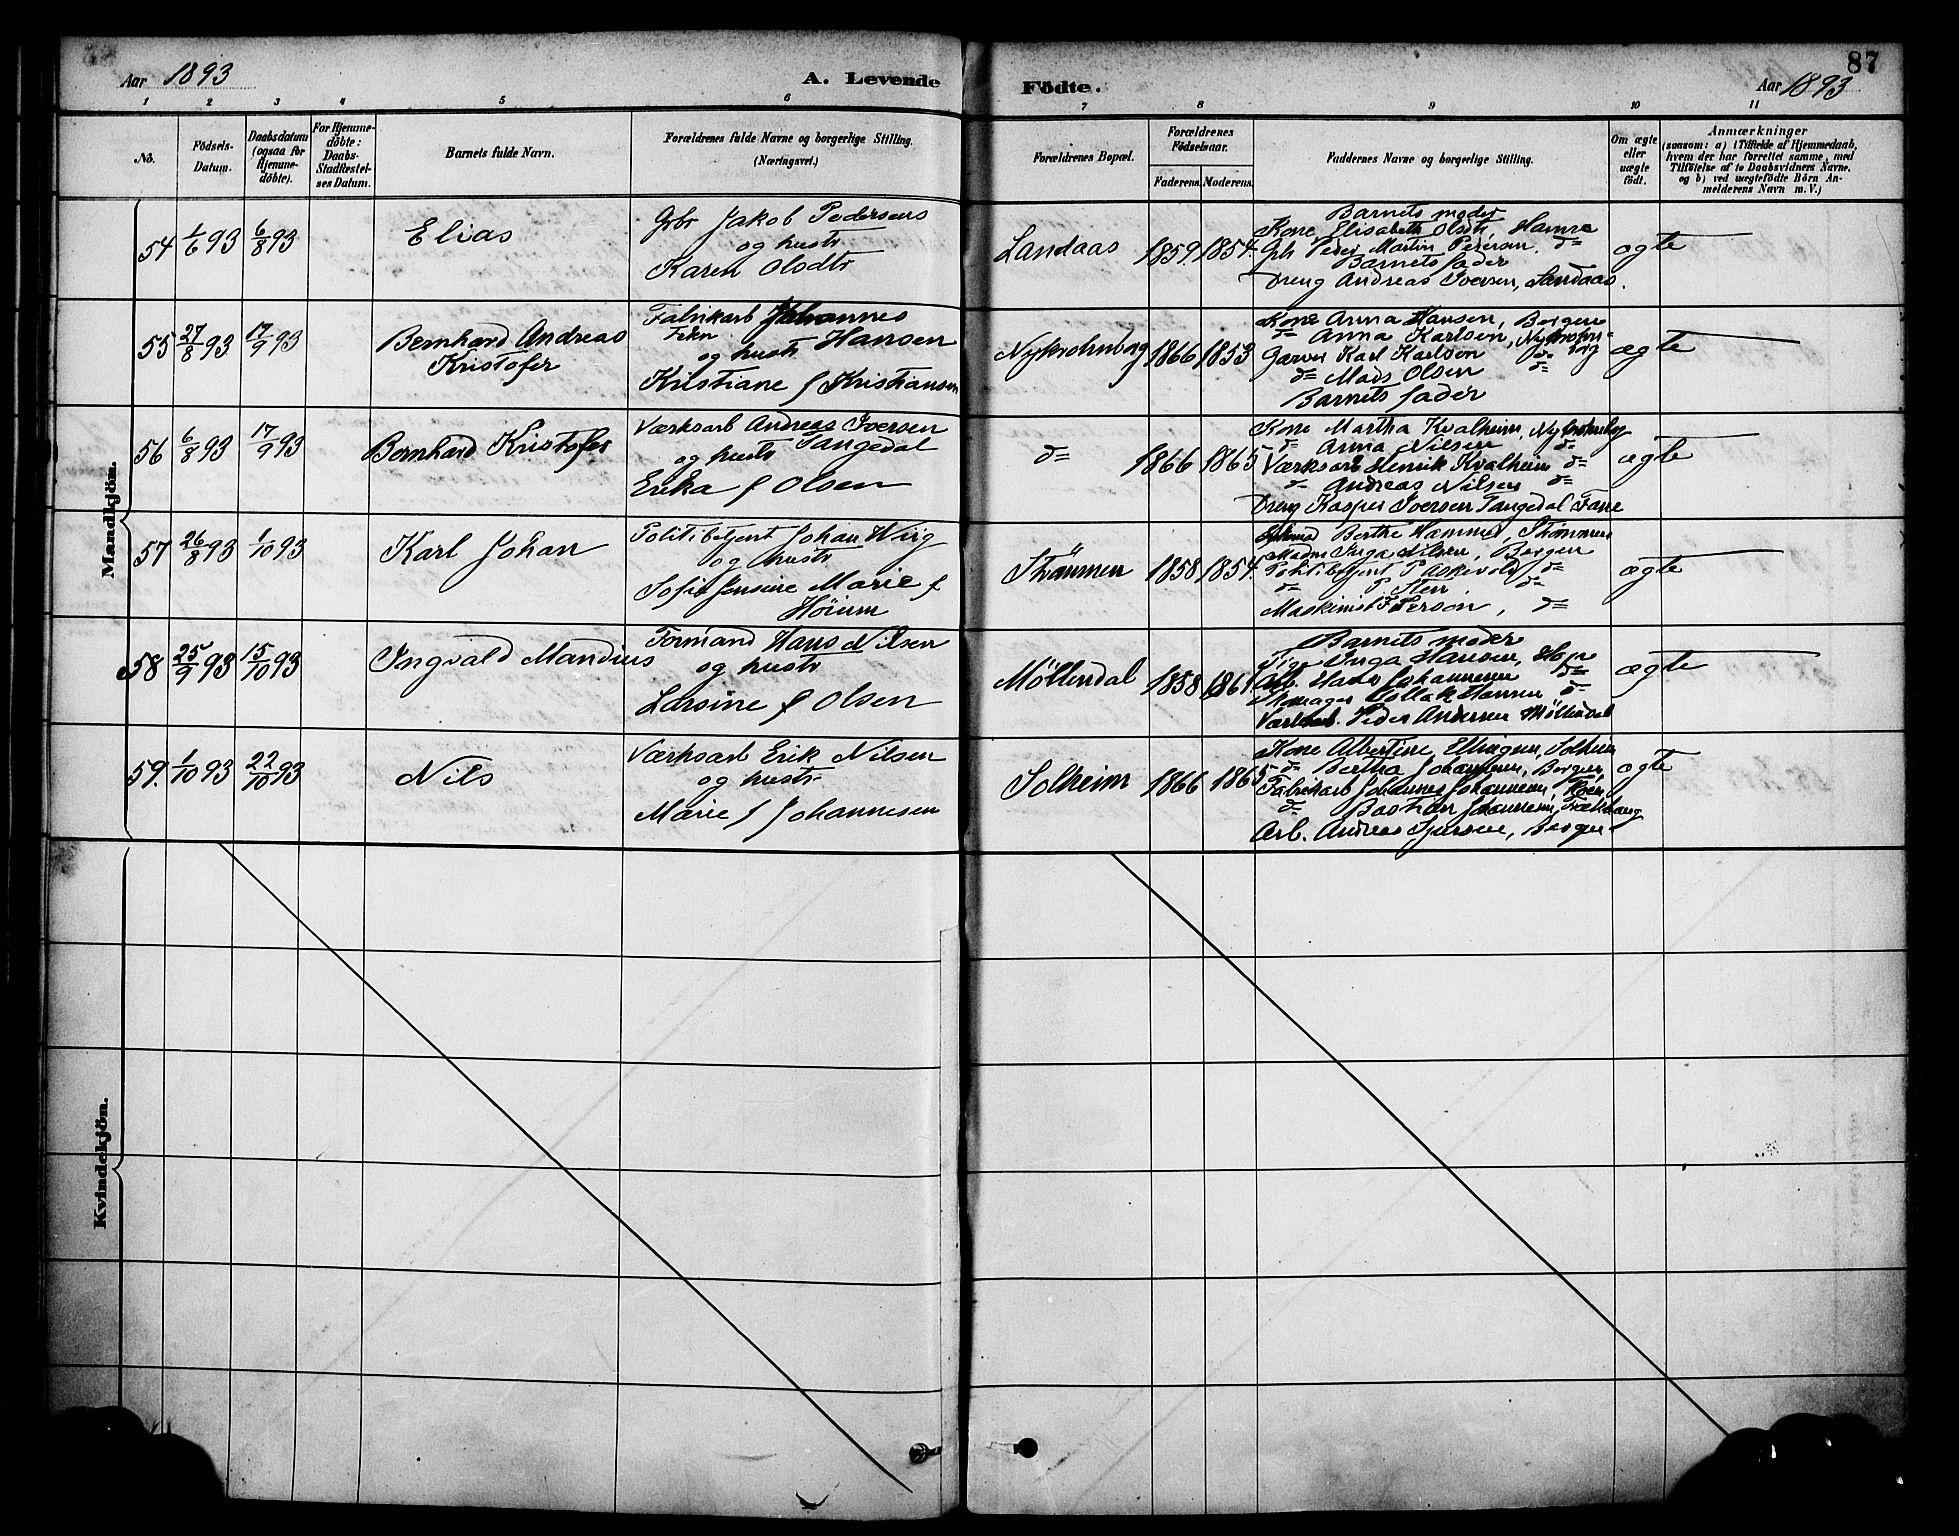 87
Aar 1893
A. Levende
Födte.
Aar 1893
1 2 3 4 5 6 7 8 9 10 11
No.
Födsels-
Datum.
Daabsdatum
(ogsaa for
Hjemme-
döbte).
For Hjemme-
döbte:
Daabs-
Stadfæstel-
ses Datum.
Barnets fulde Navn.
Forældrenes fulde Navne og borgerlige Stilling.
(Næringsvei.)
Forældrenes Bopæl.
Forældrenes
Födselsaar.
Faderens. Moderens.
Faddernes Navne og borgerlige Stilling.
Om ægte
eller
uægte
födt.
Anmærkninger
(saasom: a) i Tilfælde af Hjemmedaab,
hvem der har forrettet samme, med
Tilföielse af to Daabsvidners Navne,
og b) ved uægtefödte Börn An-
melderens Navn m. V.)
Mandkjön.
54 1/6 93 6/8 93
Elias
Gbr Jakob Pedersens
og hustr
Karen Olsdtr
Landaas 1859. 1854.
Barnets moder
Kone Elisabeth Olsdtr, Hamre
Gbr Peder Martin Pedersen. d=
Barnets fader
Dreng Andreas Iversen, Landaas.
ægte
55 27/8 93 17/9 93
Bernhard Andreas
Kristofer
Fabrikarb Johannes
Hansen
og hustr
Kristiane f Kristiansen
Nykrohnborg 1866 1853
Kone Anna Hansen, Bergen
d= Anna Karlsen, Nykrohn-
borg
Garver Karl Karlson d=
d= Mads Olsen d=
Barnets fader
ægte
56 6/8 93 17/9 93
Bernhard Kristofer
Værksarb Andreas Iversen
Tangedal
og hustr
Erika f Olsen
d= 1866 1865
Kone Martha Kvalheim, Nykrohnbg
d= Anna Nilsen d=
Værksarb Henrik Kvalheim d=
d= Andreas Nilsen d=
Dreng Kasper Iversen Tangedal Fane
ægte
57 26/8 93 1/10 93
Karl Johan
Politibetjent Johan Wiig
og hustr
Sofie Jensine Marie f
Höium
Strömmen 1858 1854.
Berthe Hammer, Strömmen
Madm Inga Nilsen, Bergen
Politibetjent P Askevold d=
d= P Sten d=
Maskinist Iverson, d=
ægte
58 25/9 93 15/10 93
Ingvald Mandius
Formand Hans Nilsen
og hustr
Larsine f Olsen
Möllendal 1858 1861
Barnets moder
Pige Inga Hansen,
Arb. Hans Johannesen d=
Hansen d=
Værksarb. Peder Andersen Möllendal
ægte
59. 1/10 93 22/10 93
Nils
Værksarb Erik Nilsen
og hustr
Marie f Johannesen
Solheim 1866 1865
Kone Albertine Ellingsen, Solheim
d= Bertha Johannesen, Bergen,
Fabrikarb Johannes Johannesen,
d= Bastian Johannesen,
Arb. Andreas Sjursen, Bergen
ægte
Kvindekjön.